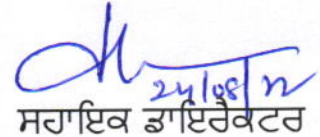 24/08/22
ਸਹਾਇਕ ਡਾਇਰੈਕਟਰ